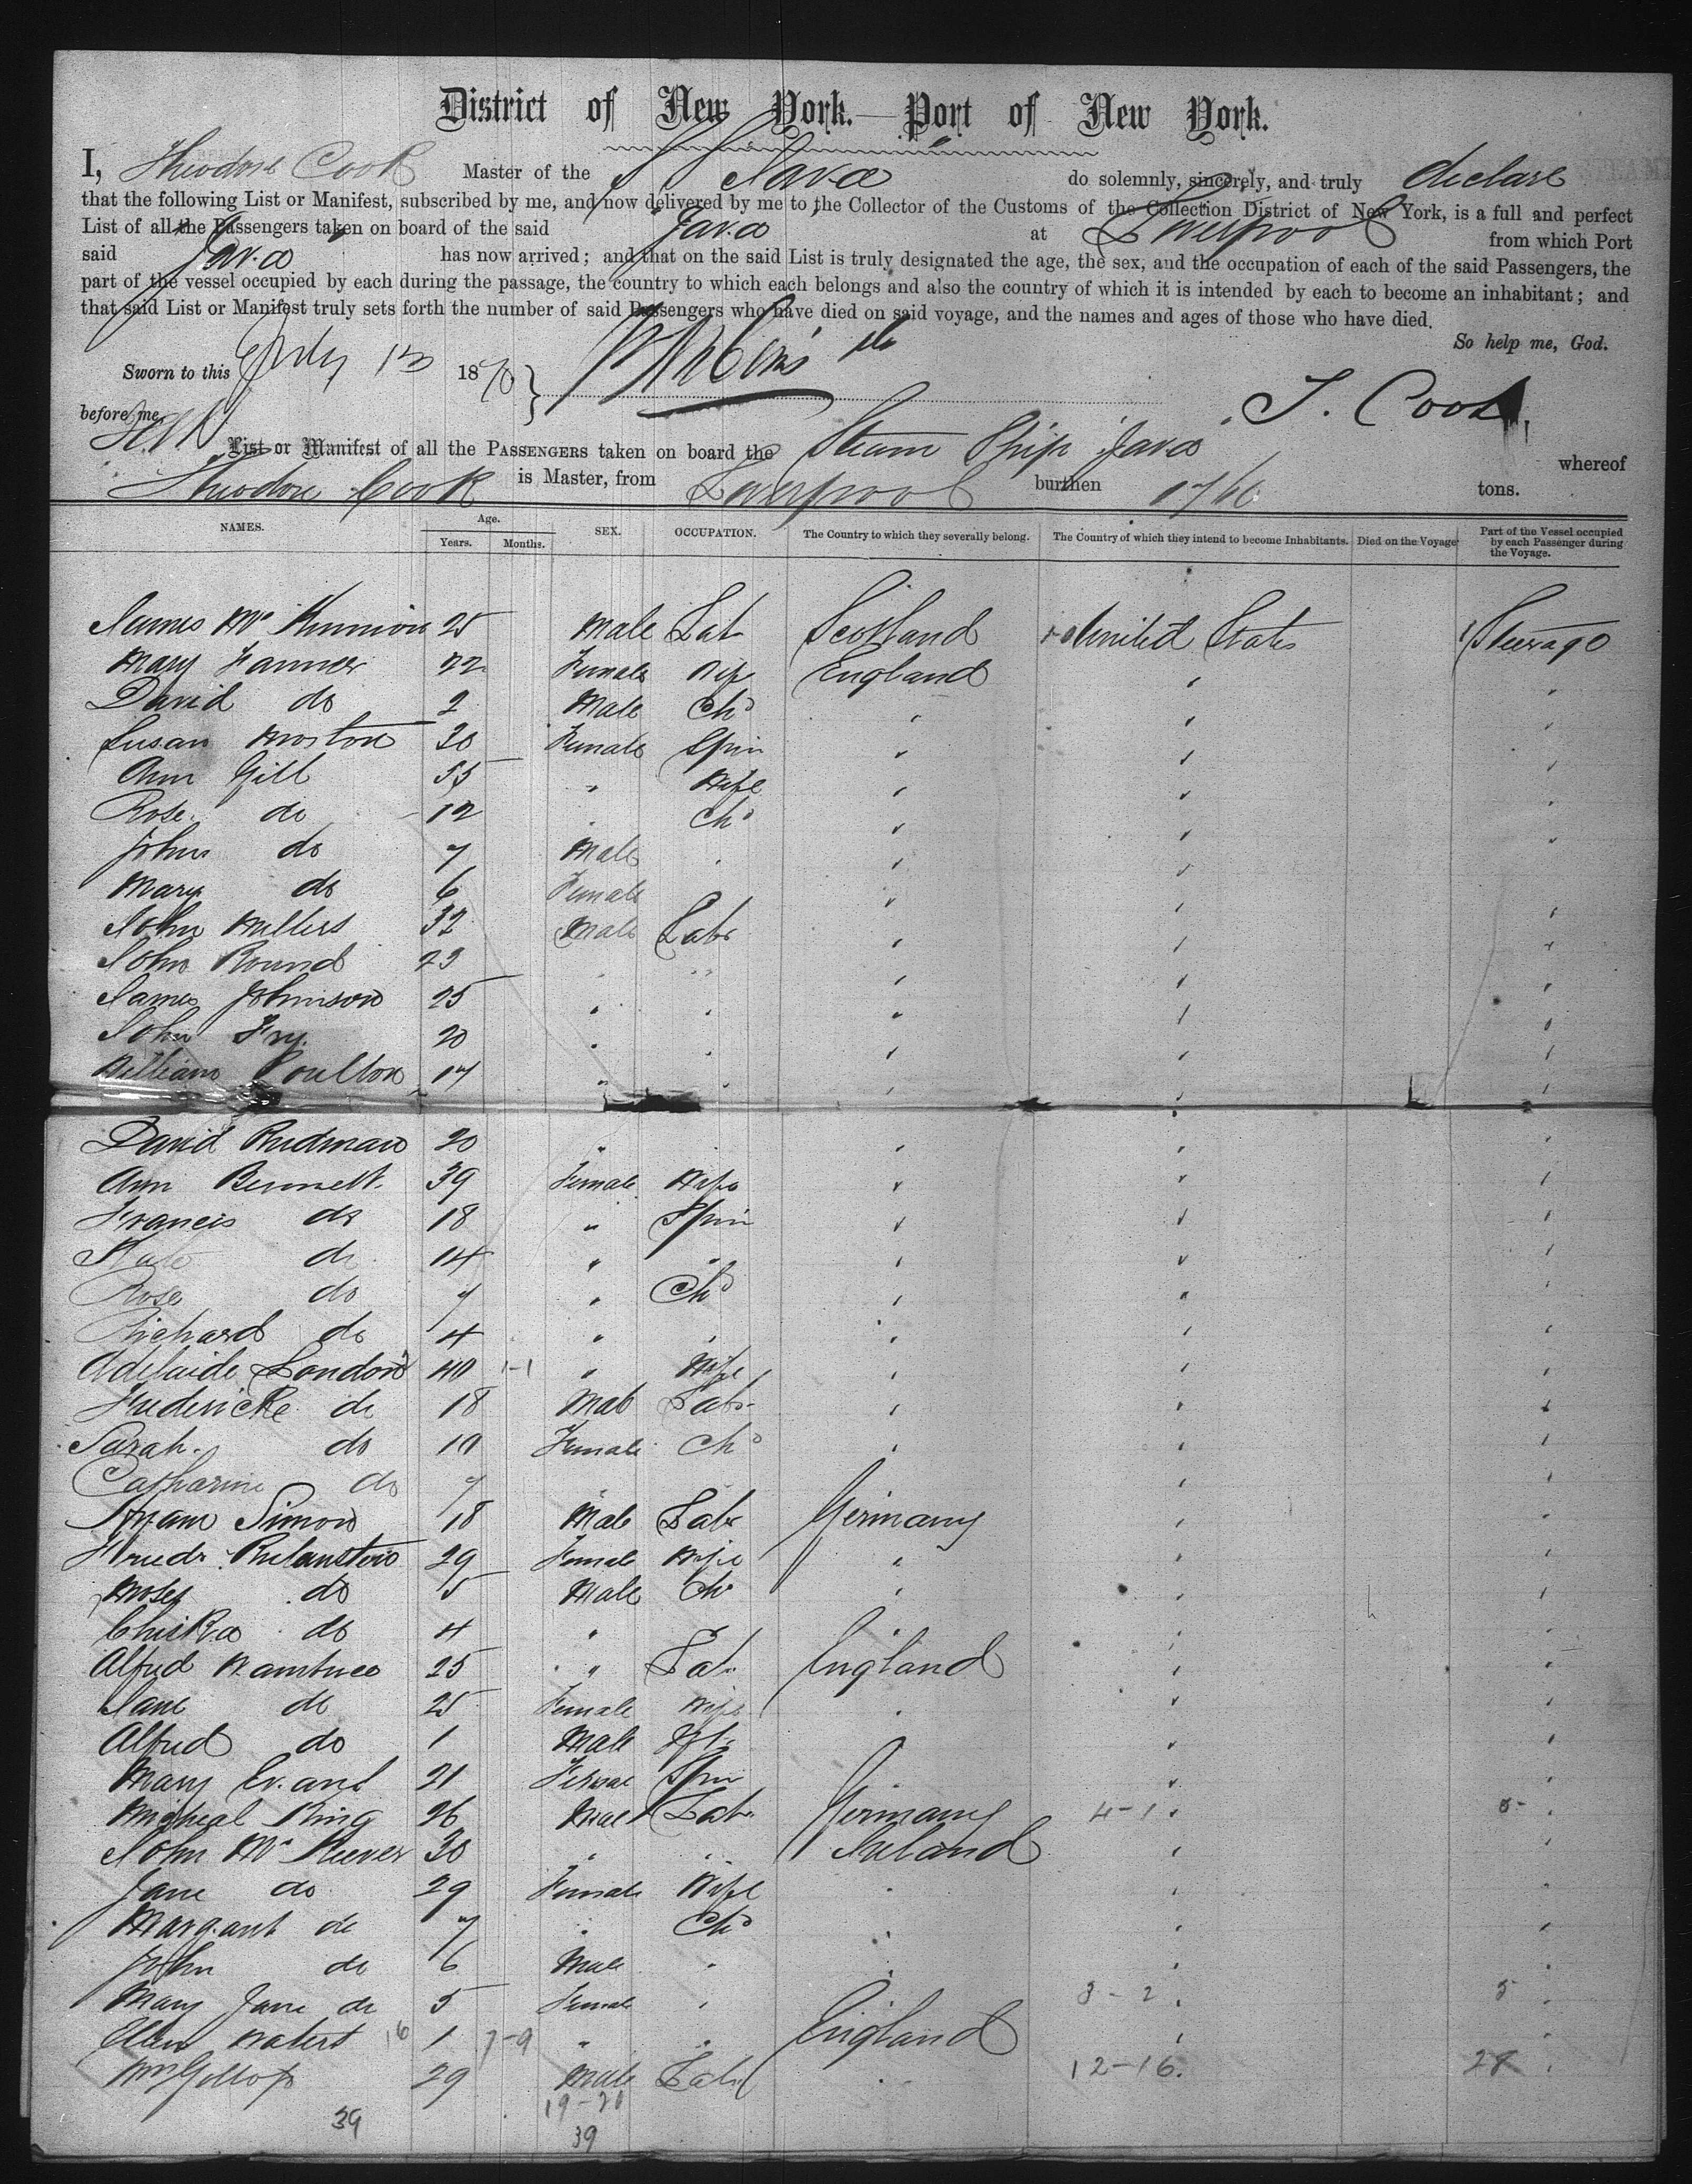 District of New York.—Port of New York.
I, Theodore Cook Master of the S S Java do solemnly, sincerely, and truly declare
that the following List or Manifest, subscribed by me, and now delivered by me to the Collector of the Customs of the Collection District of New York, is a full and perfect
List of all the Passengers taken on board of the said Java at Liverpool from which Port
said Java has now arrived; and that on the said List is truly designated the age, the sex, and the occupation of each of the said Passengers, the
part of the vessel occupied by each during the passage, the country to which each belongs and also the country of which it is intended by each to become an inhabitant; and
that said List or Manifest truly sets forth the number of said Passengers who have died on said voyage, and the names and ages of those who have died.
So help me, God.
Sworn to this July 13 1870
T. Cook
before me,
List or Manifest of all the PASSENGERS taken on board the Steam Ship Java whereof
Theodore Cook is Master, from Liverpool burthen 1766 tons.
NAMES. Age. Years. Months. SEX. OCCUPATION. The Country to which they severally belong. The Country of which they intend to become Inhabitants. Died on the Voyage Part of the Vessel occupied by each Passenger during the Voyage.
James Mc Kunnion 25 Male Lab Scotland United States Steerage
Mary Farmer 22 Female Wife England "
David do 2 Male Chd " "
Susan Morton 30 Female Spin " "
Ann Gill 55 " Wife " "
Rose do 12 " Chd " "
John do 7 Male " " "
Mary do 6 Female " "
John Millers 32 Male Labr " "
John Round 23 " " " "
James Johnson 25 " " " "
John Fry. 20 " " " "
William Poulton 17 " " " "
David Rudman 20 " " " "
Ann Bennett 39 Female Wife " "
Francis do 18 " Spin " "
Kate do 14 " " " "
Rose do 7 " Chd " "
Richard do 4 " " " "
Adelaide London 40 1-1 " Wife " "
Fredericke do 18 Male Labr " "
Sarah. do 10 Female Chd " "
Catharine do 7 " " "
Simon 18 Male Labr Germany "
29 Female Wife " "
Moses do 5 Male Chd " "
do 4 " " " "
Alfred 25 " Lab England "
Jane do 25 Female Wife " "
Alfred do 1 Male Inft " "
Mary Evans 21 Female Spin " "
Micheal King 26 Male Lab. Germany 4-1 "
John Mc Keever 30 " " Ireland "
Jane do 29 Female Wife " "
Margaret do 7 " Chd " "
John do 6 Male " " "
Mary Jane do 5 Female " 3-2 " 5
Ellen Waters 16 1 7-9 " " England "
Wm Gollop 29 Male Lab " 12-16. 28
19-20
39
39